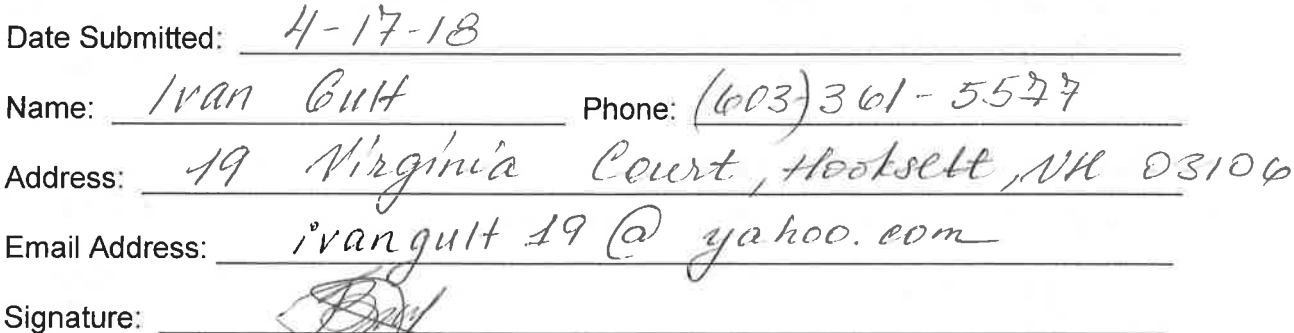 Date Submitted: 4-17-18
Name: Ivan Gult Phone: (603) 361-5577
Address: 19 Virginia Court, Hooksett, NH 03106
Email Address: ivangult19@yahoo.com
Signature: